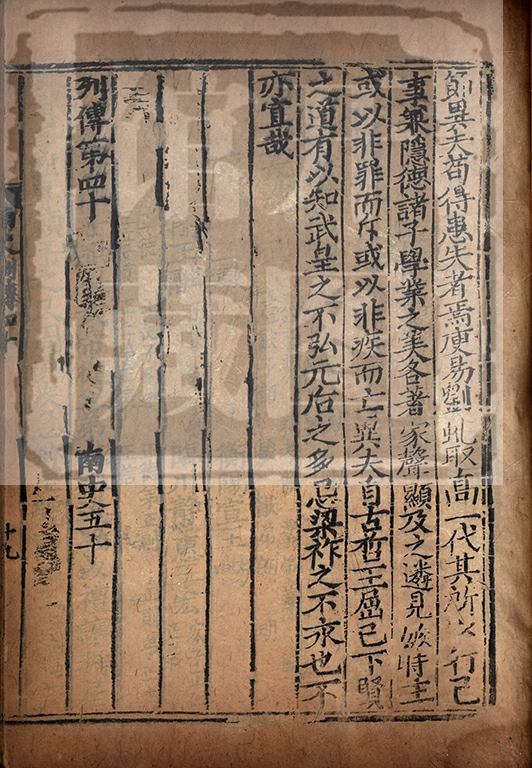 節異夫苟得患失者焉庾易劉虬取高一代其所以行己
事兼隱德諸子學業之美各著家聲顯及之遴見嫉時主
或以非罪而斥或以非疾而亡異夫自古哲王屈己下賢
之道有以知武皇之不弘元后之多忌梁祚之不永也不
亦宜哉
列傳第四十
南史五十
十九
館藏